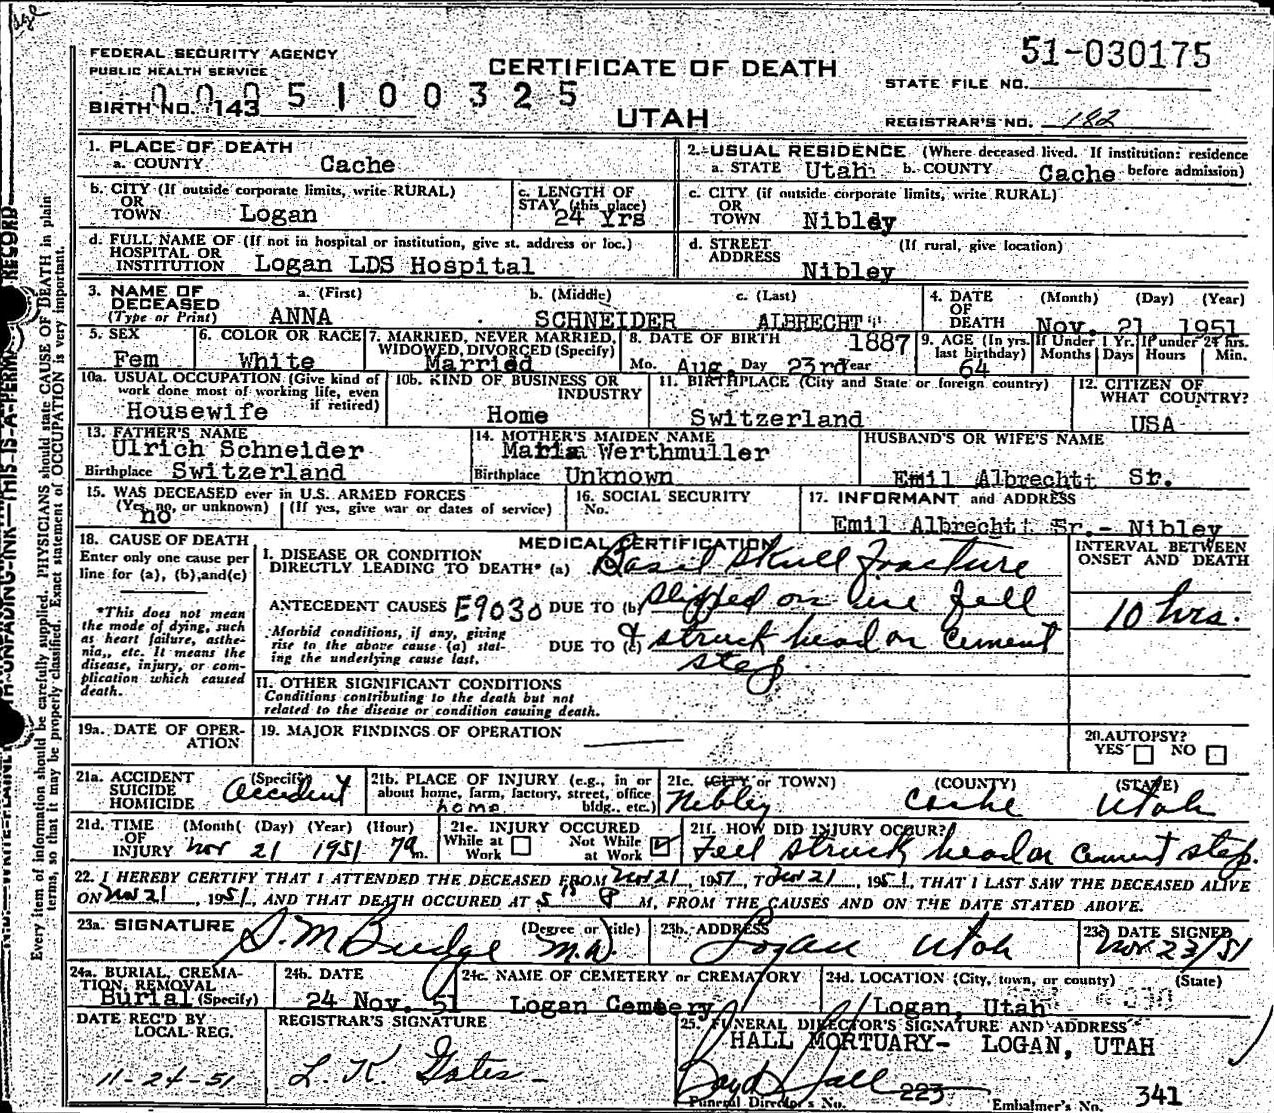 51-030175
FEDERAL SECURITY AGENCY
PUBLIC HEALTH SERVICE
CERTIFICATE OF DEATH
STATE FILE NO.
0005100325
BIRTH NO. 143
UTAH
REGISTRAR'S NO. 182
1. PLACE OF DEATH
a. COUNTY Cache
2. USUAL RESIDENCE (Where deceased lived. If institution: residence
a. STATE Utah b. COUNTY Cache before admission)
b. CITY (If outside corporate limits, write RURAL)
OR
TOWN Logan
c. LENGTH OF
STAY (this place)
24 Yrs
c. CITY (if outside corporate limits, write RURAL)
OR
TOWN Nibley
d. FULL NAME OF (If not in hospital or institution, give st. address or loc.)
HOSPITAL OR
INSTITUTION Logan LDS Hospital
d. STREET (If rural, give location)
ADDRESS
Nibley
3. NAME OF
DECEASED
(Type or Print)
a. (First) b. (Middle) c. (Last)
ANNA SCHNEIDER ALBRECHT
4. DATE (Month) (Day) (Year)
OF
DEATH Nov. 21, 1951
5. SEX
Fem
6. COLOR OR RACE
White
7. MARRIED, NEVER MARRIED,
WIDOWED, DIVORCED (Specify)
Married
8. DATE OF BIRTH 1887
Mo. Aug. Day 23rd Year
9. AGE (In yrs. last birthday) 64
If Under 1 Yr. Months Days
If under 24 hrs. Hours Min.
10a. USUAL OCCUPATION (Give kind of
work done most of working life, even
Housewife if retired)
10b. KIND OF BUSINESS OR
INDUSTRY
Home
11. BIRTHPLACE (City and State or foreign country)
Switzerland
12. CITIZEN OF
WHAT COUNTRY?
USA
13. FATHER'S NAME
Ulrich Schneider
Birthplace Switzerland
14. MOTHER'S MAIDEN NAME
Maria Werthmuller
Birthplace Unknown
HUSBAND'S OR WIFE'S NAME
Emil Albrecht Sr.
15. WAS DECEASED ever in U.S. ARMED FORCES
(Yes, no, or unknown) (If yes, give war or dates of service)
no
16. SOCIAL SECURITY
No.
17. INFORMANT and ADDRESS
Emil Albrecht Sr.- Nibley
18. CAUSE OF DEATH
Enter only one cause per
line for (a), (b), and (c)
*This does not mean
the mode of dying, such
as heart failure, asthe-
nia,, etc. It means the
disease, injury, or com-
plication which caused
death.
MEDICAL CERTIFICATION
I. DISEASE OR CONDITION
DIRECTLY LEADING TO DEATH* (a) Basil Skull Fracture
ANTECEDENT CAUSES E9030 DUE TO (b) slipped on ice fell
Morbid conditions, if any, giving
rise to the above cause (a) stat-
ing the underlying cause last.
DUE TO (c) & struck head on cement
step
INTERVAL BETWEEN
ONSET AND DEATH
10 hrs.
II. OTHER SIGNIFICANT CONDITIONS
Conditions contributing to the death but not
related to the disease or condition causing death.
19a. DATE OF OPER-
ATION
19. MAJOR FINDINGS OF OPERATION
20. AUTOPSY?
YES NO
21a. ACCIDENT (Specify)
SUICIDE
HOMICIDE Accident
21b. PLACE OF INJURY (e.g., in or
about home, farm, factory, street, office
home bldg., etc.)
21c. (CITY or TOWN) (COUNTY) (STATE)
Nibley Cache Utah
21d. TIME (Month) (Day) (Year) (Hour)
OF
INJURY Nov 21 1951 7a m.
21e. INJURY OCCURED
While at Work Not While at Work
21f. HOW DID INJURY OCCUR?
Fell struck head on cement step.
22. I HEREBY CERTIFY THAT I ATTENDED THE DECEASED FROM Nov 21, 1951, TO Nov 21, 1951, THAT I LAST SAW THE DECEASED ALIVE
ON Nov 21, 1951, AND THAT DEATH OCCURED AT 5 15 P M, FROM THE CAUSES AND ON THE DATE STATED ABOVE.
23a. SIGNATURE (Degree or title)
S. M Budge M.D.
23b. ADDRESS
Logan Utah
23c DATE SIGNED
Nov 23/51
24a. BURIAL, CREMA-
TION, REMOVAL
Burial (Specify)
24b. DATE
24 Nov. 51
24c. NAME OF CEMETERY or CREMATORY
Logan Cemetery
24d. LOCATION (City, town, or county) (State)
Logan, Utah
DATE REC'D BY
LOCAL REG.
11-24-51
REGISTRAR'S SIGNATURE
L. K. Gates
25. FUNERAL DIRECTOR'S SIGNATURE AND ADDRESS
HALL MORTUARY- LOGAN, UTAH
Boyd Hall 223
Funeral Director's No. Embalmer's No. 341
Every item of information should be carefully supplied. PHYSICIANS should state CAUSE OF DEATH in plain
terms, so that it may be properly classified. Exact statement of OCCUPATION is very important.